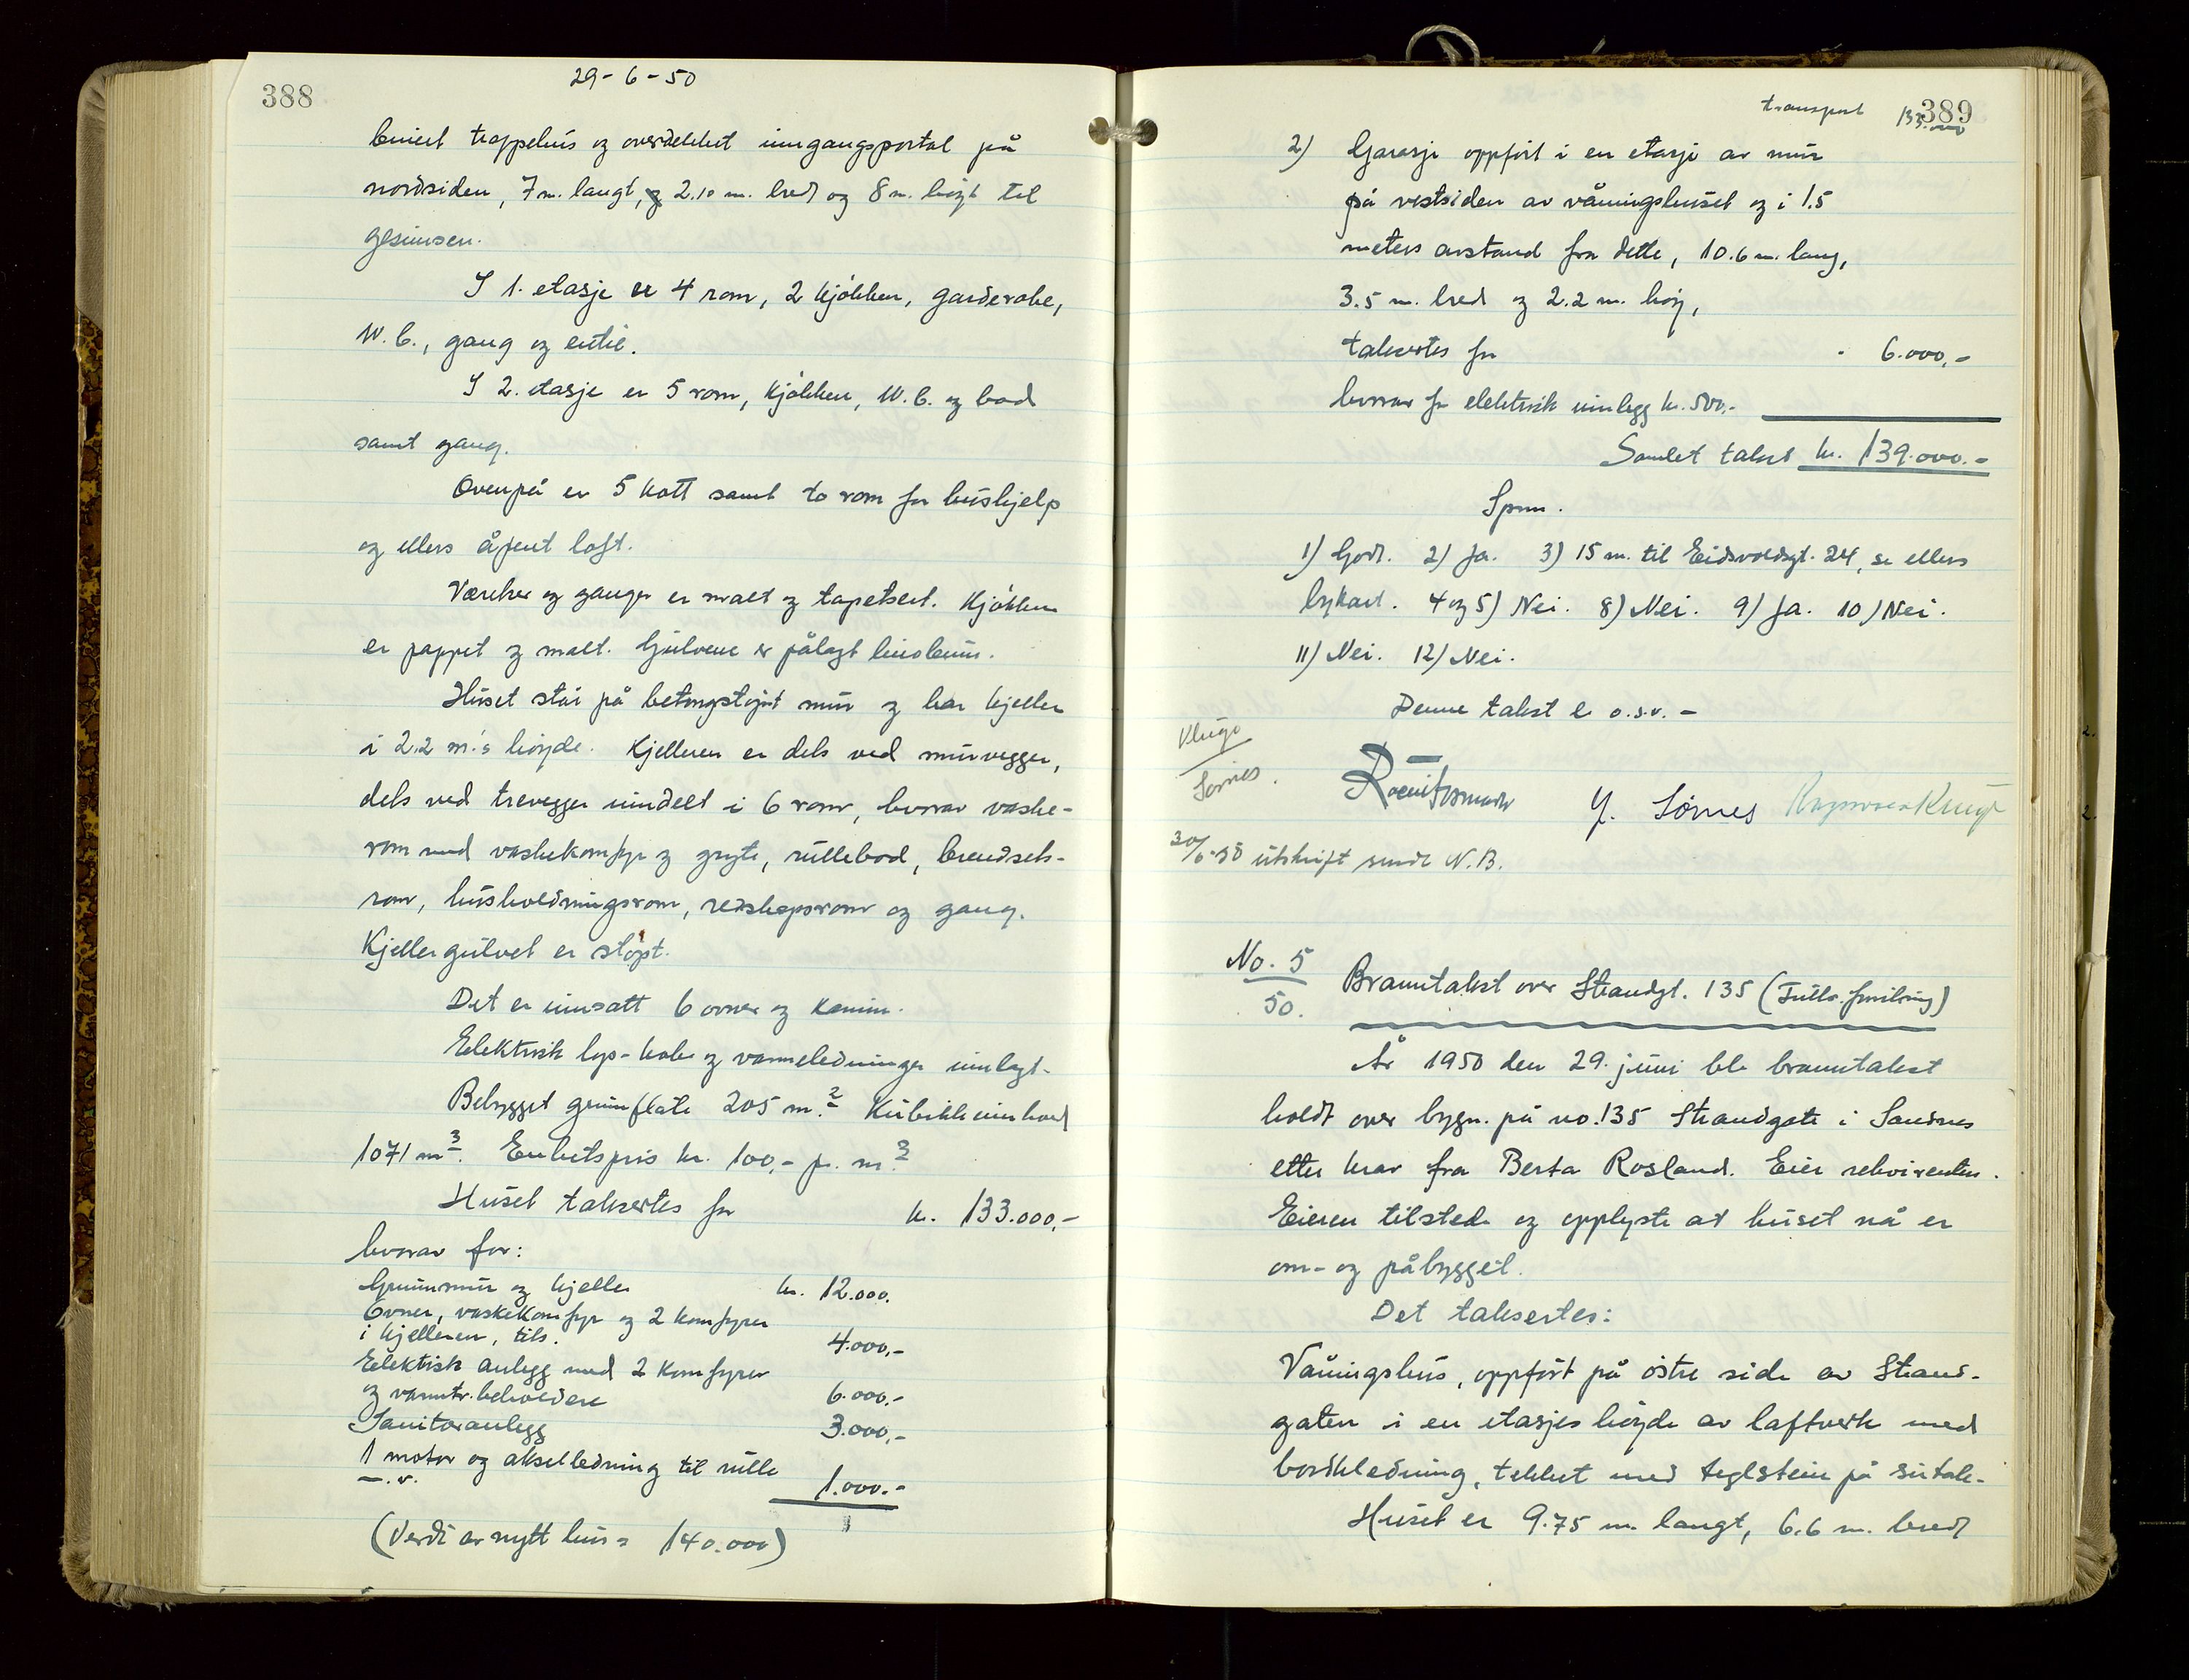 388
29-6-50
bueet trappehus og overdekket inngangsportal på
nordsiden, 7 m. langt, 2.10 m. bred og 8 m. høgt til
gesimsen.
I 1. etasje er 4 rom, 2 kjøkken, garderobe,
W.C., gang og entré.
I 2. etasje er 5 rom, kjøkken, W.C. og bad
samt gang.
Ovenpå er 5 kott samt to rom for hushjelp
og ellers åpent loft.
Værelser og ganger er malt og tapetsert. Kjøkken
er pappet og malt. Gulvene er pålagt linoleum.
Huset står på betongstøpt mur og har kjeller
i 2.2 m.'s høyde. Kjelleren er dels ved murvegger,
dels ved trevegger inndelt i 6 rom, hvorav vaske-
rom med vaskekomfyr og gryte, rullebod, brendsels-
rom, husholdningsrom, redskapsrom og gang.
Kjellergulvet er støpt.
Det er innsatt 6 ovner og kamin.
Elektrisk lys- koke og varmeledninger innlagt.
Bebygget grunnflate 205 m.2 Kubikkinnhold
1071 m3. Enhetspris kr. 100,- pr. m.3
Huset takseres for kr. 133.000,-
hvorav for:
Grunnmur og kjeller kr. 12.000.
Ovner, vaskekomfyr og 2 komfyrer
i kjelleren, tils. 4.000,-
Elektrisk anlegg med 2 komfyrer
og varmtv.beholdere 6.000,-
Sanitæranlegg 3.000,-
1 motor og akselledning til rulle
m.v. 1.000.-
(Verdi av nytt hus = 140.000)
389
transport 133.000
2) Garasje oppført i en etasje av mur
på vestsiden av våningshuset og i 1.5
meters avstand fra dette, 10.6 m. lang,
3.5 m. bred og 2.2 m. høy,
takseres for - 6.000,-
hvorav for elektrisk innlegg kr. 500,-
Samlet takst kr. 139.000.-
Spm.
1) Godt. 2) Ja. 3) 15 m. til Eidsvoldsgt. 24, se ellers
bykart. 4 og 5) Nei. 8) Nei. 9) Ja. 10) Nei.
11) Nei. 12) Nei.
Denne takst e o.s.v. -
Kluge
Sørnes.
Y. Sørnes
30/6-50 utskrift sendt N.B.
No. 5
50.
Branntakst over Strandgt. 135
År 1950 den 29. juni ble branntakst
holdt over bygn. på no. 135 Strandgate i Sandnes
etter krav fra Berta Rosland. Eier rekvirenten.
Eieren tilstede og opplyste at huset nå er
om- og påbygget.
Det takseres:
Våningshus, oppført på østre side av Strand-
gaten i en etasjes høyde av laftverk med
bordkledning, tekket med teglstein på sutak.
Huset er 9.75 m. langt, 6.6 m. bredt